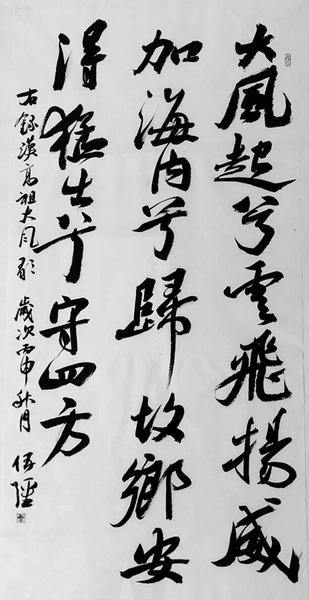 大風起兮雲飛揚威
加海内兮歸故鄉安
得猛士兮守四方
右録漢高祖大风歌 歲次丙申秋月